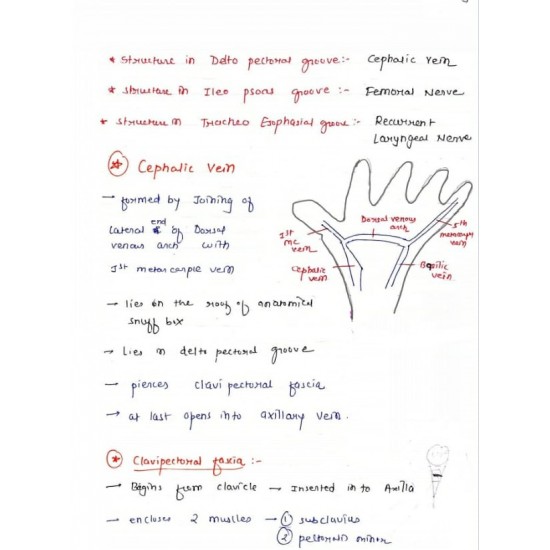 * Structure in Delto pectoral groove:- Cephalic vein
* Structure in Ileo psoas groove :- Femoral Nerve
* Structure in Tracheo Esophasial groove:- Recurrent
Laryngeal Nerve
* Cephalic Vein
→ formed by Joining of
lateral end of Dorsal
venous arch with
Ist metacarple vein
→ lies on the roof of anatomical
snuff box
→ Lies in delto pectoral groove
→ pierces clavi pectoral fascia
→ at last opens into axillary vein.
Dorsal venous
arch
Ist
mc
vein
Cephalic
vein
5th
vein
Basilic
vein
* Clavipectoral fascia :-
→ Begins from clavicle → Inserted in to Axilla
→ encloses 2 muscles → ① subclavius
② pectoralis minor